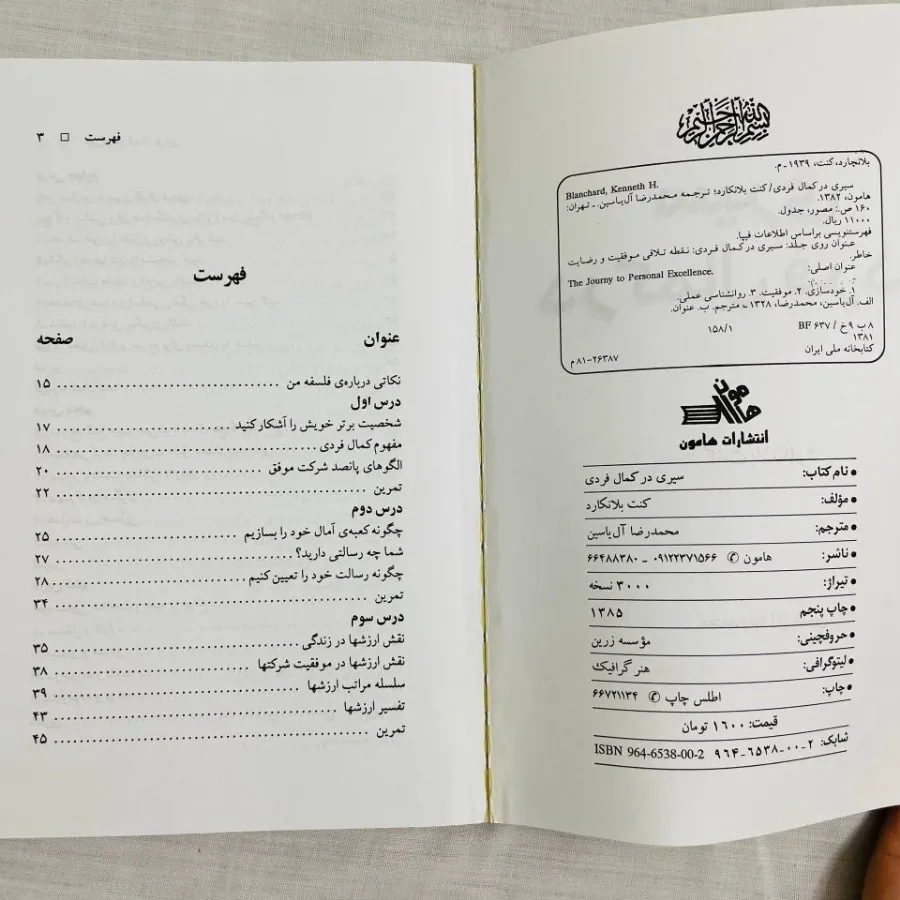 بسم الله الرحمن الرحیم
بلانچارد، کنت، ۱۹۳۹ ـ م.
Blanchard, Kenneth H.
سیری در کمال فردی / کنت بلانکارد؛ ترجمه محمدرضا آل‌یاسین. ـ تهران:
هامون، ۱۳۸۲.
۱۶۰ ص.: مصور، جدول.
۱۱۰۰۰ ریال.
فهرستنویسی براساس اطلاعات فیپا.
عنوان روی جلد: سیری در کمال فردی: نقطه تلاقی موفقیت و رضایت
خاطر.
عنوان اصلی:
The Journy to Personal Excellence.
۱. خودسازی. ۲. موفقیت. ۳. روانشناسی عملی.
الف. آل‌یاسین، محمدرضا، ۱۳۲۸ ـ مترجم. ب. عنوان.
۸ ب ۹ خ / BF ۶۳۷ ۱۵۸/۱
۱۳۸۱
کتابخانه ملی ایران ۲۶۳۸۷-۸۱ م
هامون
انتشارات هامون
نام کتاب: سیری در کمال فردی
مؤلف: کنت بلانکارد
مترجم: محمدرضا آل‌یاسین
ناشر: هامون ✆ ۰۹۱۲۲۳۷۱۵۶۶ ـ ۶۶۴۸۸۳۸۰
تیراژ: ۳۰۰۰ نسخه
چاپ پنجم ۱۳۸۵
حروفچینی: مؤسسه زرین
لیتوگرافی: هنر گرافیک
چاپ: اطلس چاپ ✆ ۶۶۷۲۱۱۳۴
قیمت: ۱۶۰۰ تومان
شابک: ۲-۰۰-۶۵۳۸-۹۶۴ ISBN 964-6538-00-2
فهرست □ ۳
فهرست
عنوان صفحه
نکاتی درباره‌ی فلسفه من ۱۵
درس اول
شخصیت برتر خویش را آشکار کنید ۱۷
مفهوم کمال فردی ۱۸
الگوهای پانصد شرکت موفق ۲۰
تمرین ۲۲
درس دوم
چگونه کعبه‌ی آمال خود را بسازیم ۲۵
شما چه رسالتی دارید؟ ۲۷
چگونه رسالت خود را تعیین کنیم ۲۸
تمرین ۳۴
درس سوم
نقش ارزشها در زندگی ۳۵
نقش ارزشها در موفقیت شرکتها ۳۸
سلسله مراتب ارزشها ۳۹
تفسیر ارزشها ۴۳
تمرین ۴۵